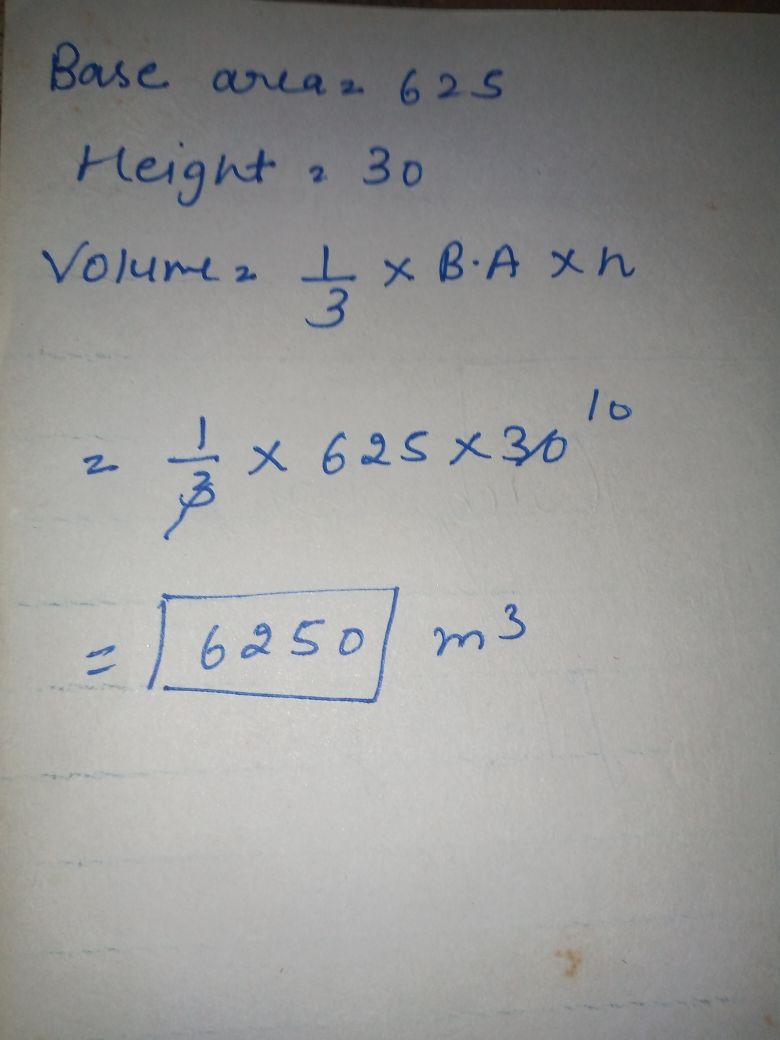 Base area = 625
Height = 30
Volume = 1/3 × B.A × h
= 1/3 × 625 × 30 10
= 6250 m³